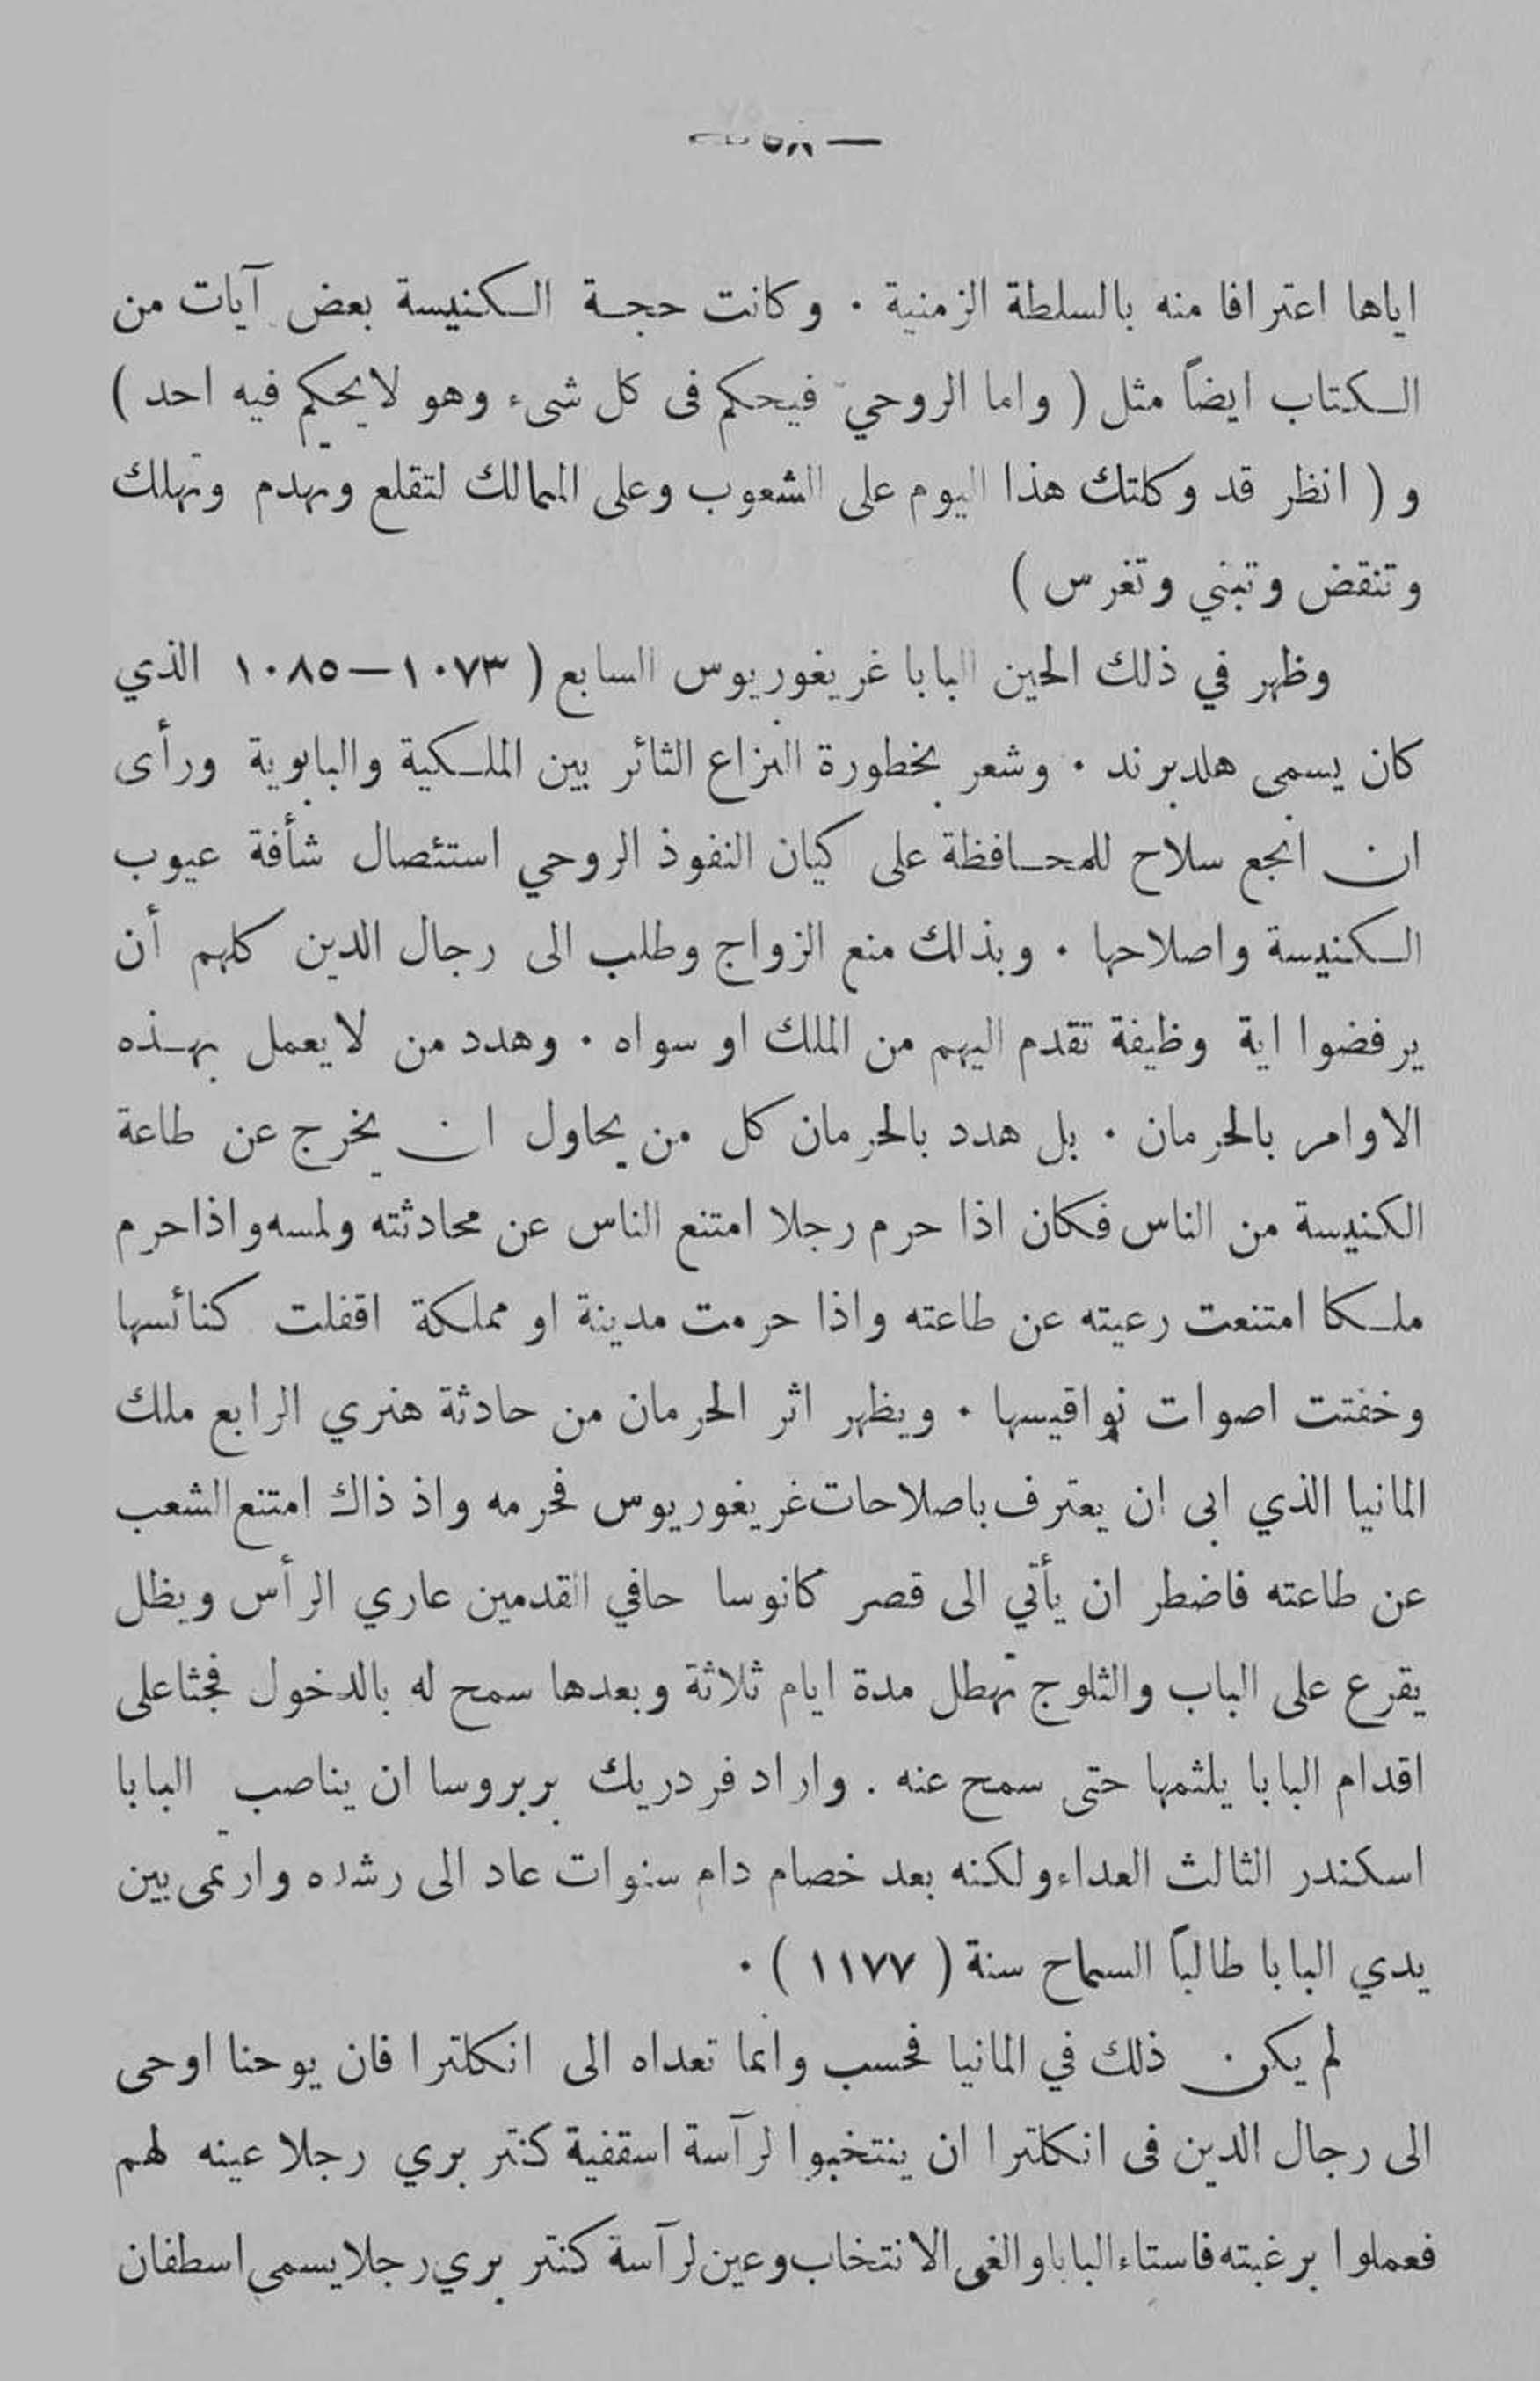 — ٥٨ —
اياها اعترافا منه بالسلطة الزمنية . وكانت حجة الكنيسة بعض آيات من
الكتاب ايضاً مثل ( واما الروحيّ فيحكم فى كل شىء وهو لا يحكم فيه احد )
و ( انظر قد وكلتك هذا اليوم على الشعوب وعلى الممالك لتقلع وتهدم وتهلك
وتنقض وتبني وتغرس )
وظهر في ذلك الحين البابا غريغوريوس السابع ( ١٠٧٣—١٠٨٥ الذي
كان يسمى هلدبرند . وشعر بخطورة النزاع الثائر بين الملكية والبابوية ورأى
ان انجع سلاح للمحافظة على كيان النفوذ الروحي استئصال شأفة عيوب
الكنيسة واصلاحها . وبذلك منع الزواج وطلب الى رجال الدين كلهم أن
يرفضوا اية وظيفة تقدم اليهم من الملك او سواه . وهدد من لا يعمل بهذه
الاوامر بالحرمان . بل هدد بالحرمان كل من يحاول ان يخرج عن طاعة
الكنيسة من الناس فكان اذا حرم رجلا امتنع الناس عن محادثته ولمسه واذا حرم
ملكا امتنعت رعيته عن طاعته واذا حرمت مدينة او مملكة اقفلت كنائسها
وخفتت اصوات نواقيسها . ويظهر اثر الحرمان من حادثة هنري الرابع ملك
المانيا الذي ابى ان يعترف باصلاحات غريغوريوس فحرمه واذ ذاك امتنع الشعب
عن طاعته فاضطر ان يأتي الى قصر كانوسا حافي القدمين عاري الرأس ويظل
يقرع على الباب والثلوج تهطل مدة ايام ثلاثة وبعدها سمح له بالدخول فجثا على
اقدام البابا يلثمها حتى سمح عنه . واراد فردريك بربروسا ان يناصب البابا
اسكندر الثالث العداء ولكنه بعد خصام دام سنوات عاد الى رشده وارتمى بين
يدي البابا طالباً السماح سنة ( ١١٧٧ ) .
لم يكن ذلك في المانيا فحسب وانما تعداه الى انكلترا فان يوحنا اوحى
الى رجال الدين فى انكلترا ان ينتخبوا لرآسة اسقفية كنتربري رجلا عينه لهم
فعملوا برغبته فاستاء البابا والغى الانتخاب وعين لرآسة كنتربري رجلا يسمى اسطفان